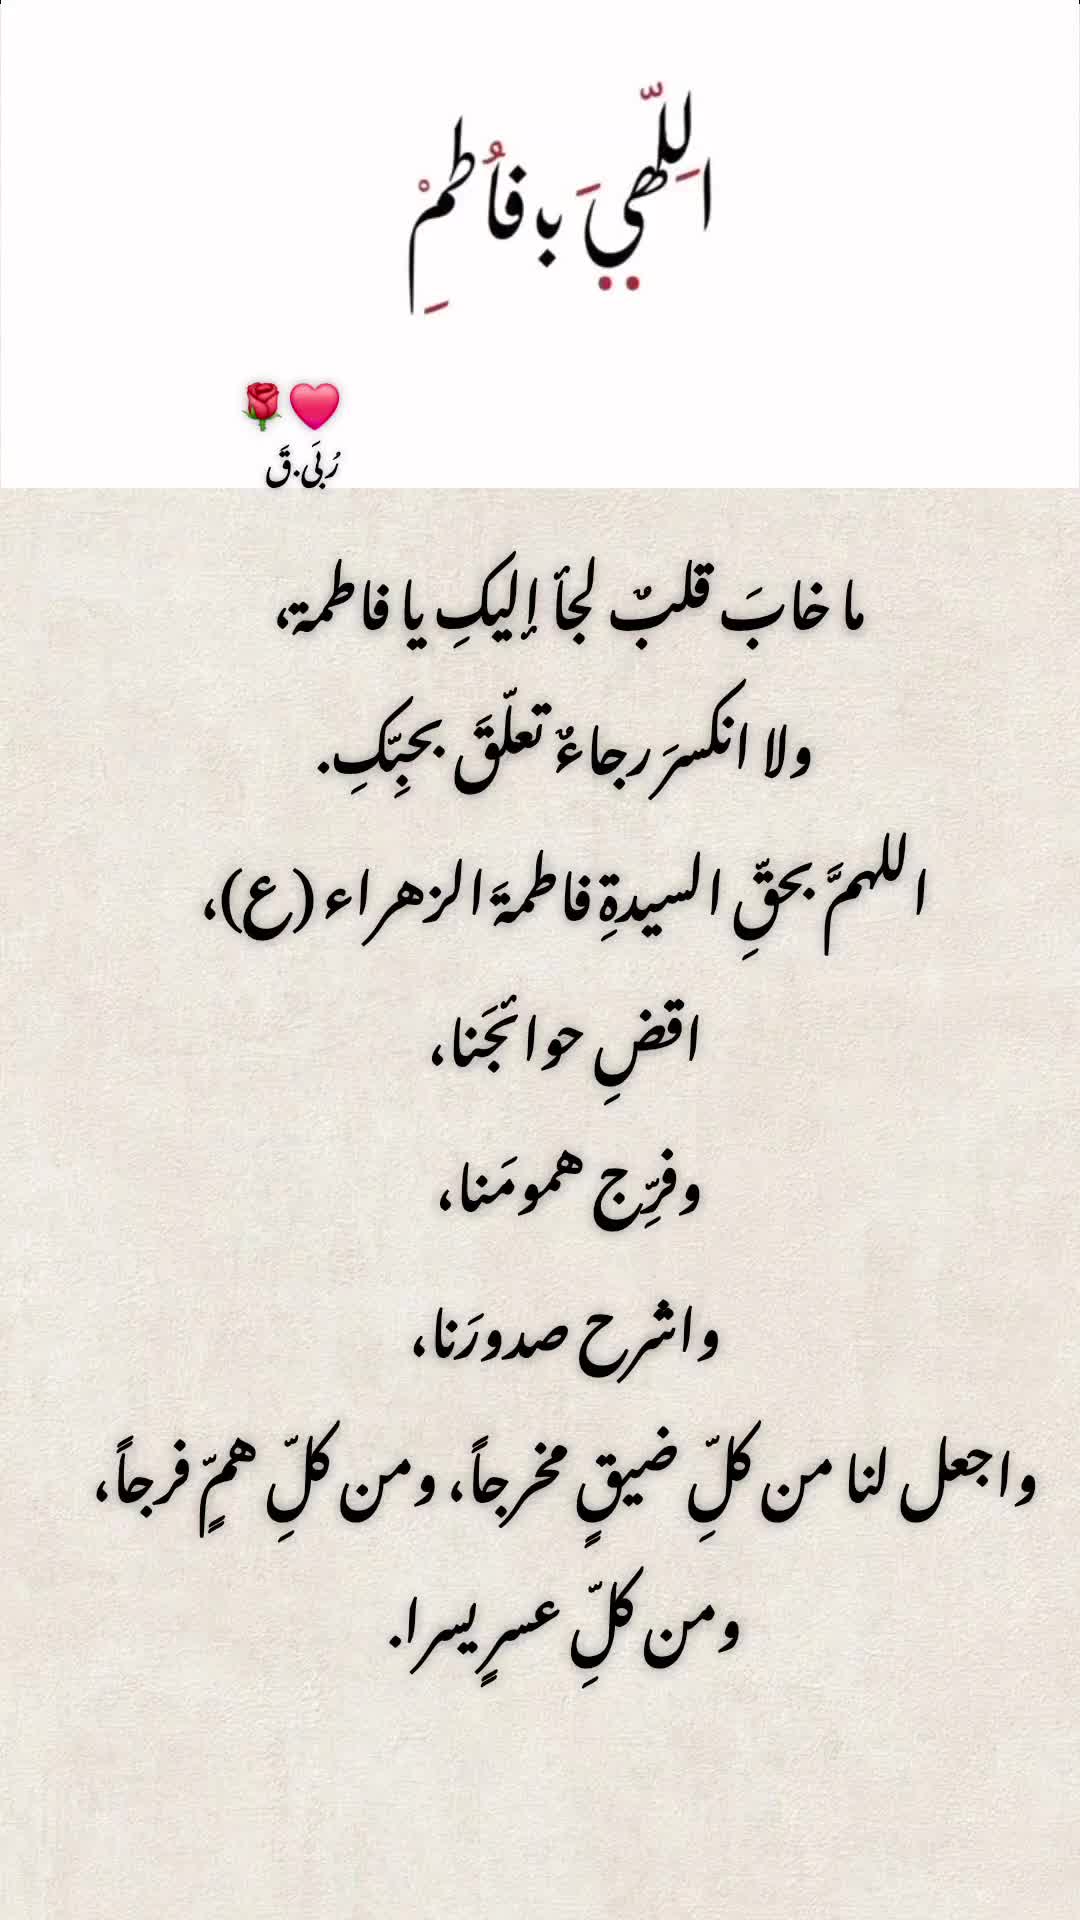 اللّهِيَ بفاطمْ
رُبَى.قَ
ما خابَ قلبٌ لجأ إليكِ يا فاطمة،
ولا انكسرَ رجاءٌ تعلّقَ بحبِّكِ.
اللهمَّ بحقِّ السيدةِ فاطمةَ الزهراء (ع)،
اقضِ حوائجَنا،
وفرِّج همومَنا،
واشرح صدورَنا،
واجعل لنا من كلِّ ضيقٍ مخرجاً، ومن كلِّ همٍّ فرجاً،
ومن كلِّ عسرٍ يسرا.